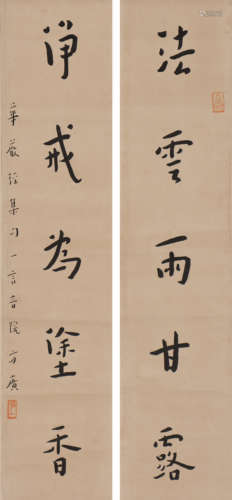 法雲雨甘露
淨戒為塗香
華嚴經集句 一言音院